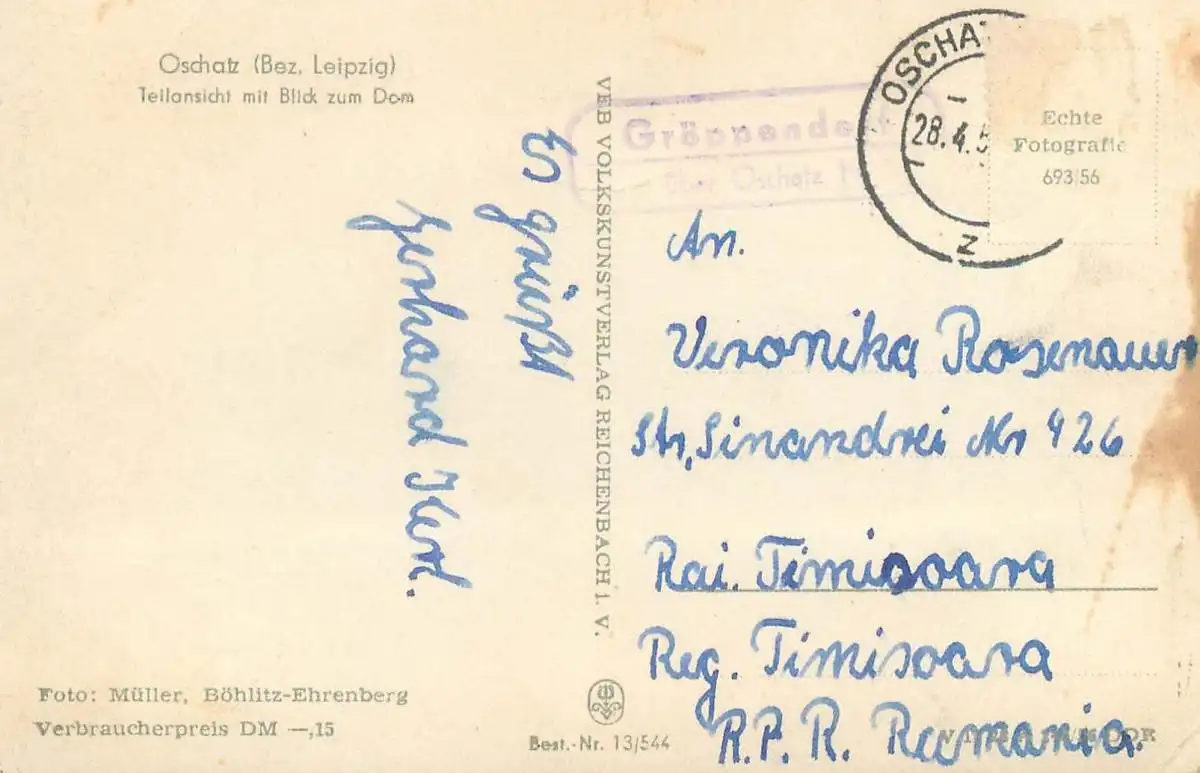 Oschatz (Bez. Leipzig)
Teilansicht mit Blick zum Dom
Es grüßt
Gerhard
VEB VOLKSKUNSTVERLAG REICHENBACH i. V.
Gröppendorf
über Oschatz
OSCHATZ
28.4.5
z
Echte
Fotografie
693/56
An.
Veronika Rosenauer
Str. Sinandrei Nr 426
Rai. Timisoara
Reg. Timisoara
R.P.R. Rumania.
Foto: Müller, Böhlitz-Ehrenberg
Verbraucherpreis DM —,15
Best.-Nr. 13/544
DDR